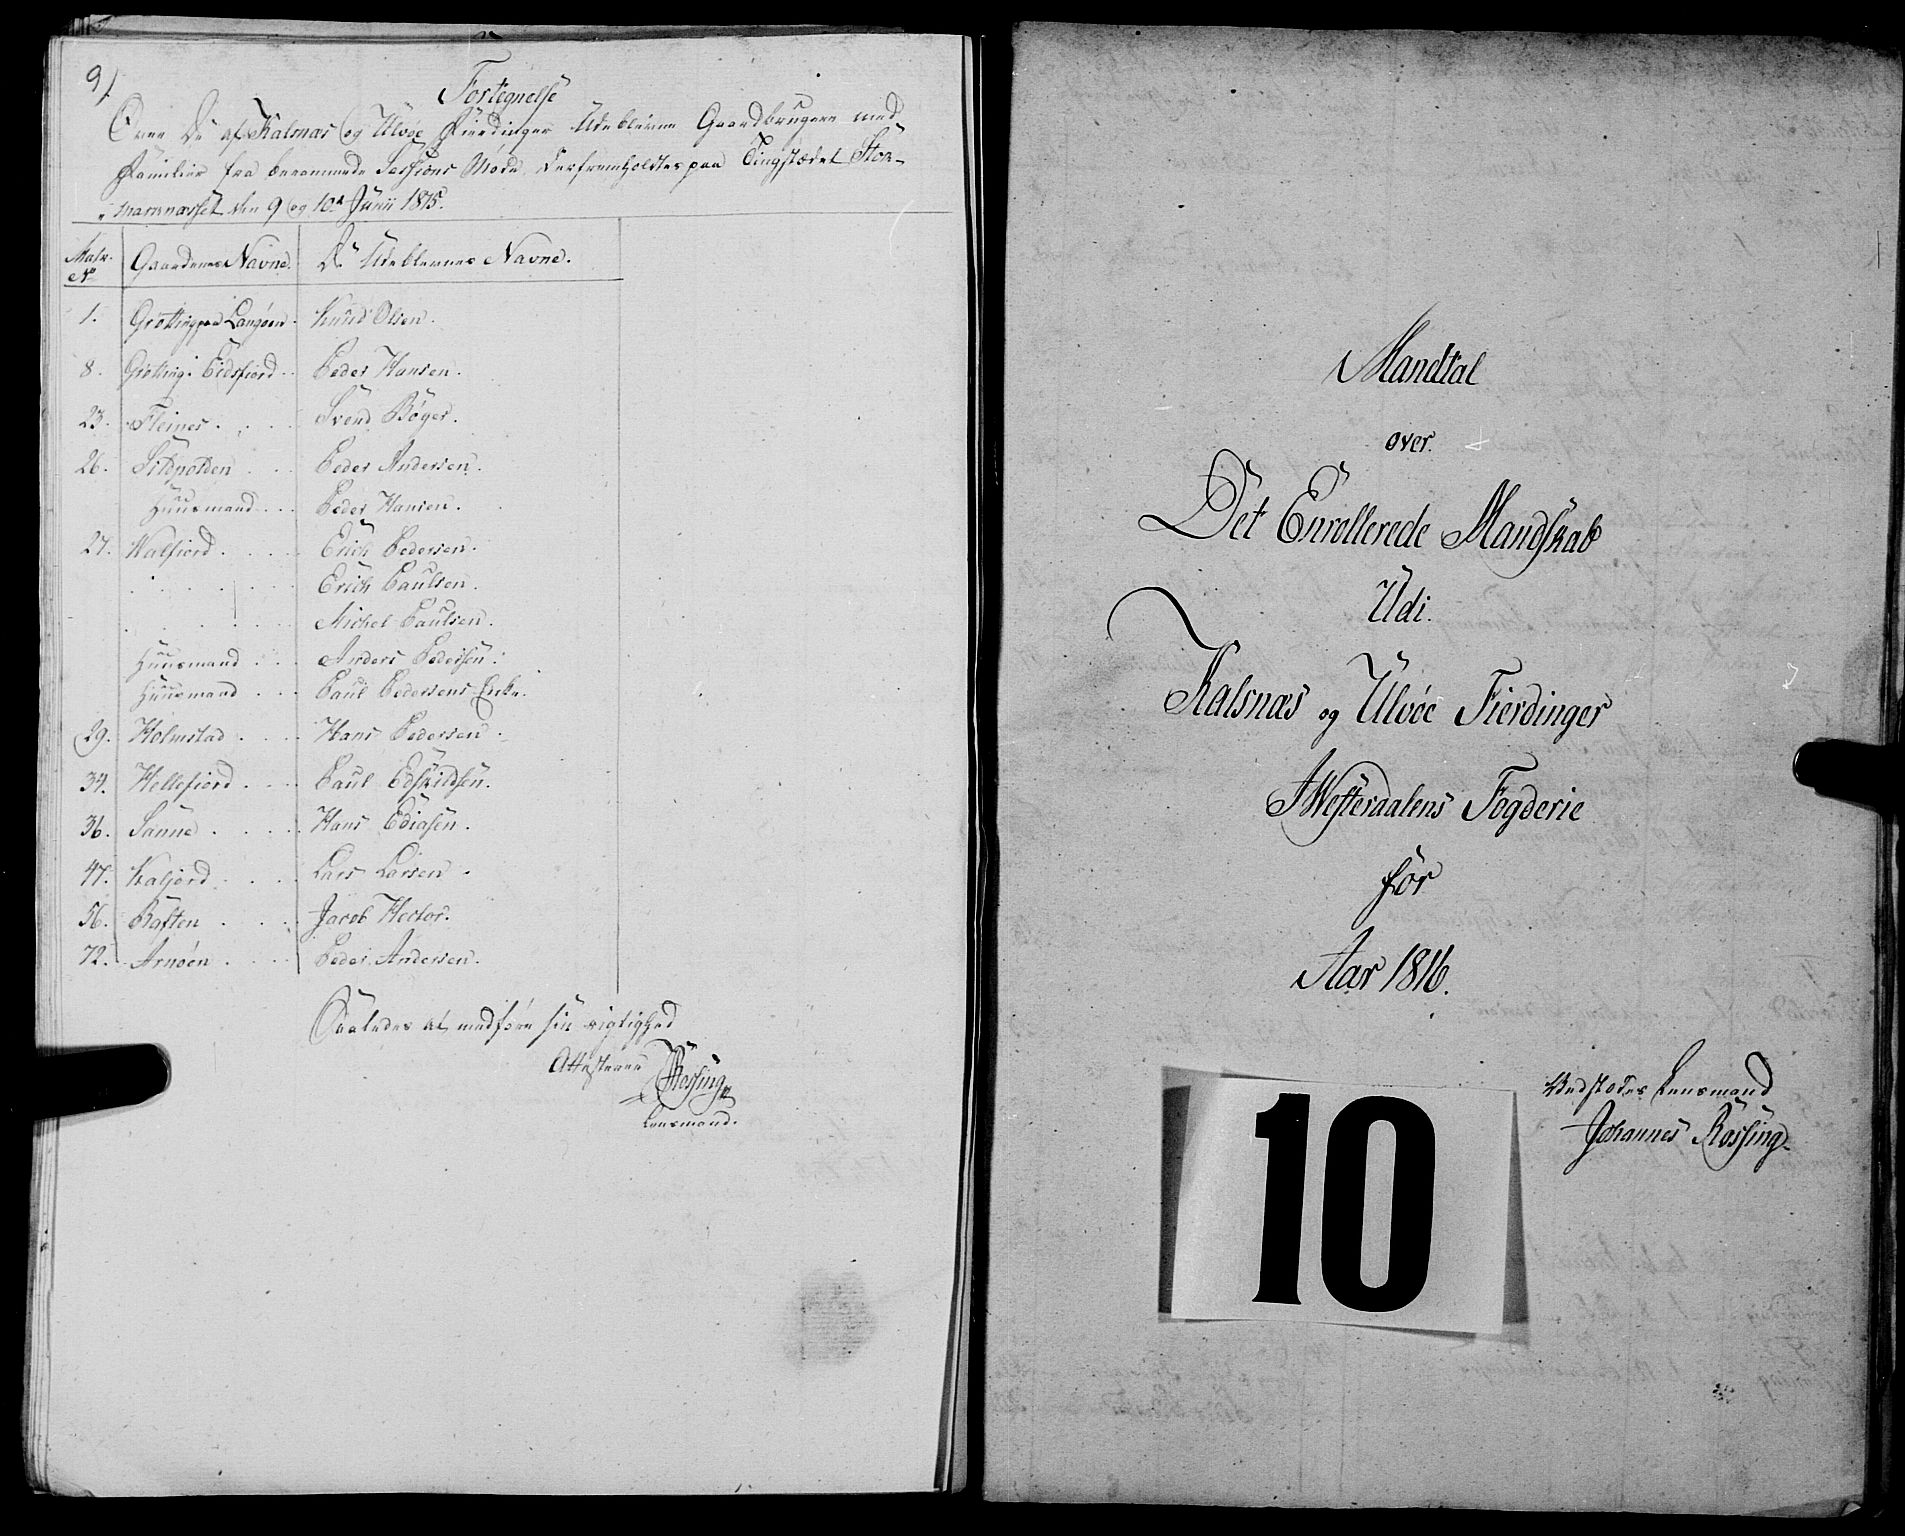 9/
Fortegnelse
Over De af Kalsnæs og Ulvøe Fierdinger Udeblevne Gaardbrugere med
Familier fra berammede Sessions Møde Derfremholdtes paa Tingstædet Stok-
marknæsset den 9 og 10d Junii 1815.
Matr. No Gaardenes Navne. De Udeblevnes Navne.
1. Grøtting paa Langøen. Knud Olsen.
8. Grøtting i Eidsfiord. Peder Hansen.
23. Fleines. Svend Bøger.
26. Sildpolden Peder Andersen.
Huusmand Peder Hansen.
27. Walfiord. Erich Pedersen.
Erich Paulsen.
Michel Paulsen.
Huusmand Anders Pedersen.
Huusmand Paul Pedersens Enke.
29. Holmstad Hans Pedersen.
34. Hellefiord. Paul Edskildsen.
36. Sanne Hans Ediasen.
47. Kaljord Lars Larsen.
56. Raften Jacob Hector.
72. Arnøen Peder Andersen.
Saaledes at medføre sin rigtighed
Attesterer JRøssing
Lensmand.
Mandtal
over.
Det Enrollerede Mandskab
Udi.
Kalsnæs og Ulvøe Fierdinger
I Westeraalens Fogderie
for
Aar 1816.
Bestædes Lensmand
Johannes Røssing
10